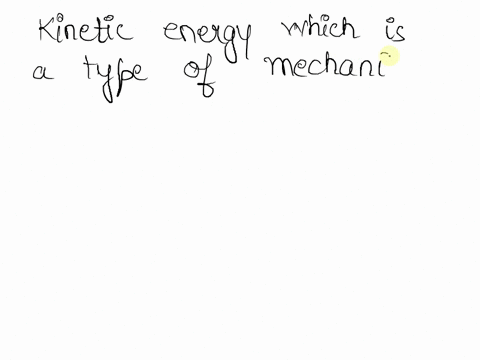 Kinetic energy which is
a type of mechani